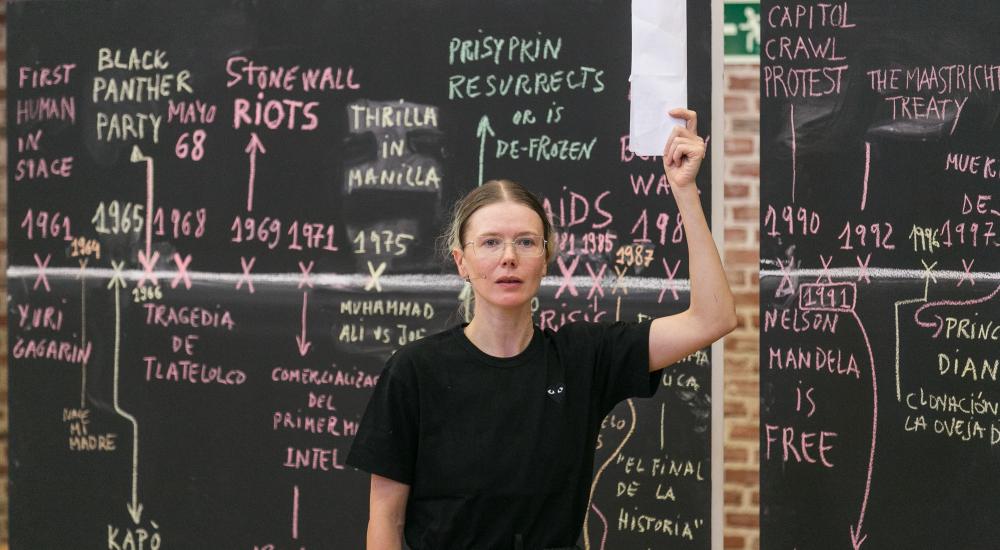 FIRST
HUMAN
IN
SPACE
1961
YURI
GAGARIN
1964
NACE
MI
MADRE
BLACK
PANTHER
PARTY
1965
1966
KAPÒ
MAYO
68
1968
TRAGEDIA
DE
TLATELOLCO
STONEWALL
RIOTS
1969
1971
COMERCIALIZAC
DEL
PRIMER MI
INTEL
THRILLA
IN
MANILLA
1975
MUHAMMAD
ALI VS JOE
PRISYPKIN
RESURRECTS
OR IS
DE-FROZEN
AIDS
81 1985
1987
198
WA
"EL FINAL
DE LA
HISTORIA"
CAPITOL
CRAWL
PROTEST
1990
1991
NELSON
MANDELA
IS
FREE
THE MAASTRICHT
TREATY
1992
1996
1997
MUER
DE
PRINC
DIAN
CLONACIÓN
LA OVEJA D